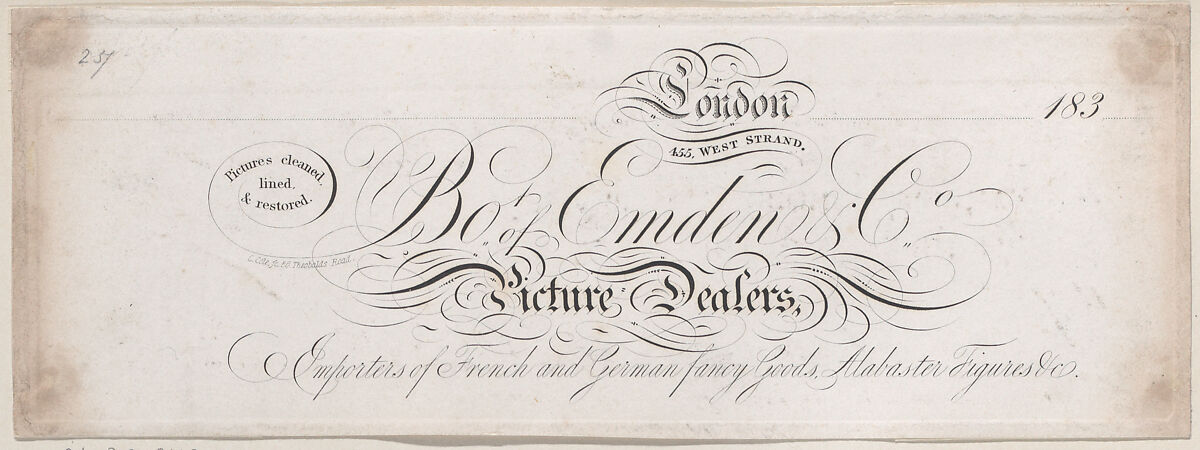 257
London
183
455, WEST STRAND.
Pictures cleaned,
lined,
& restored.
Bot. of Emden & Co.
C. Cole, fc. 56, Theobalds Road.
Picture Dealers,
Importers of French and German fancy Goods, Alabaster Figures &c.